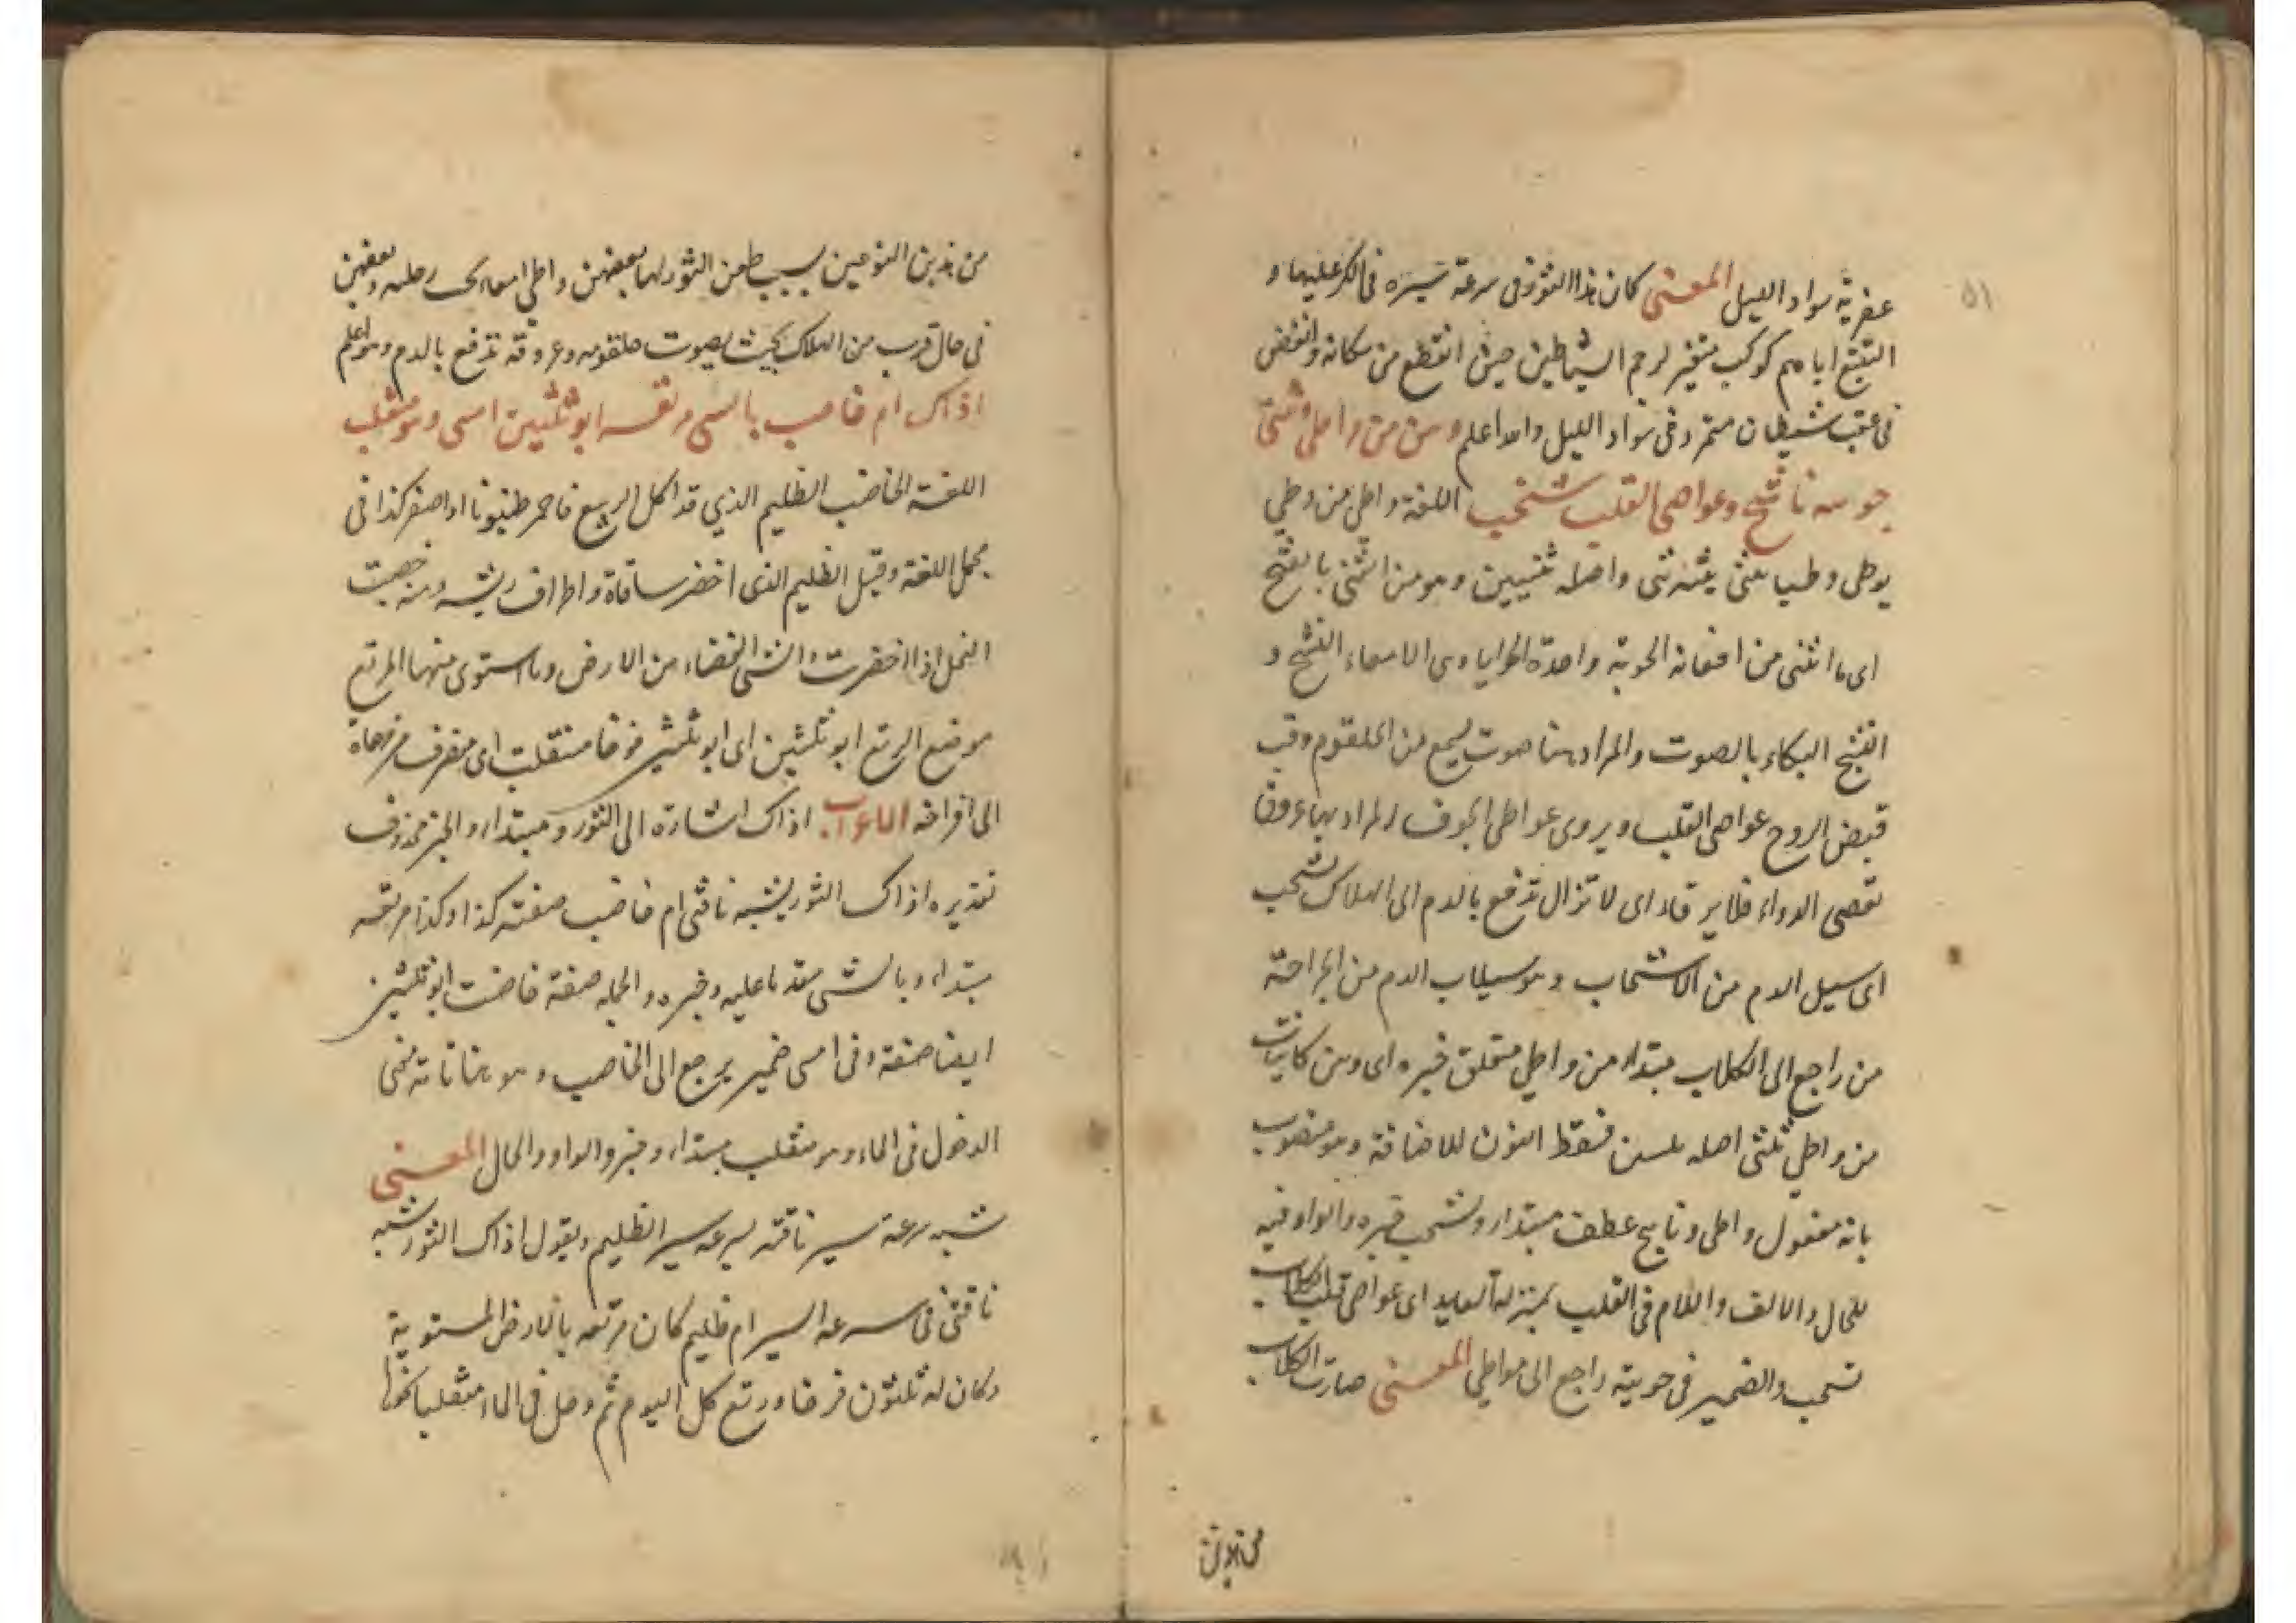 ٥١
عفرية سواد الليل المعنى كان هذا الثور فى سرعة سيره فى الكر عليها و
التتبع اياهم كوكب منير لرجم الشياطين حين انقطع من مكانه وانقض
فى عقب شيطان متمرد فى سواد الليل والله اعلم وهن من واطى ثنيى
حويته ناشج وعواصى القلب تنشخب اللغة واطى من وطى
يوطى وطيا ثنى يثنيه ثنى واصله ثنيين وهو من الثنى بالفتح
اى ما انثنى من امعائه الحوية واحدة الحوايا وهى الامعاء النشج و
النشيج البكاء بالصوت والمراد هنا صوت يسمع من الحلقوم وقت
قبض الروح عواصى القلب ويروى عواصى الجوف المراد بها عروق
تعصى الدواء فلا يرقاء اى لا تزال تدفع بالدم الى الهلاك تنشخب
اى سيل الدم من الانشخاب وهو سيلان الدم من الجراحة
من راجع الى الكلاب مبتداء من واطى متعلق خبره اى وهن كاينات
من واطى ثنيى اصله فسقط النون للاضافة وهو منصوب
بانه مفعول واطى وناشج عطف مبتداء وتنشخب خبره والواو فيه
للحال والالف واللام فى القلب بمنزلة اى عواصى قلب الكلاب
تنشخب والضمير فى حويته راجع الى واطى المعنى صارت الكلاب
من هذين
من هذين النوعين بسبب طعن الثور لها بعضهن واطى امعاء تحت رجله وبعضهن
فى حال قرب من الهلاك بحيث يصوت حلقومه وعروقه تدفع بالدم وهو اعلم
اذاك ام خاضب بالسى مرتعه ابو ثلثين امسى وهو منقلب
اللغة الخاضب الظليم الذي قد اكل الربيع فاحمر طنبوباه او اصفر كذا فى
مجمل اللغة وقيل الظليم الذى اخضر ساقاه واطراف ريشه ومنه خضبت
النخل اذا اخضرت والسى الفضاء من الارض وما استوى منها المرتع
موضع الرتع ابو ثلثين اى ابو ثلثين فرخا منقلب اى منصرف من مرعاه
الى افراخه الاعراب اذاك اشارة الى الثور وهو مبتداء والخبر محذوف
تقديره اذاك الثور يشبه ناقتى ام خاضب صفته كذا وكذا مرتعه
مبتداء وبالسى مقدما عليه وخبره والجملة صفة خاضب ابو ثلثين
ايضا صفة وفى امسى ضمير يرجع الى الخاضب وهو هنا تامة بمعنى
الدخول فى المساء وهو منقلب مبتداء وخبر والواو والحال المعنى
شبه سرعة سير ناقته بسرعة سير الظليم ويقول اذاك الثور شبه
ناقتى فى سرعة السير ام ظليم كان مرتعه بالارض المستوية
وكان له ثلثون فرخا ورتع كل اليوم ثم دخل فى المساء منقلبا نحوها